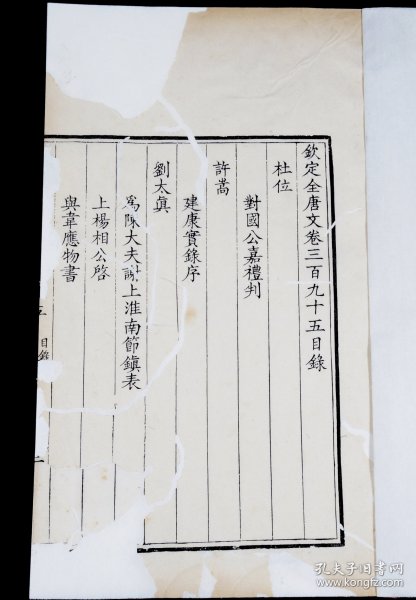 欽定全唐文卷三百九十五目錄
杜位
對國公嘉禮判
許嵩
建康實錄序
劉太真
為陳大夫謝上淮南節鎮表
上楊相公啓
與韋應物書
五 目錄 一
孔夫子旧书网